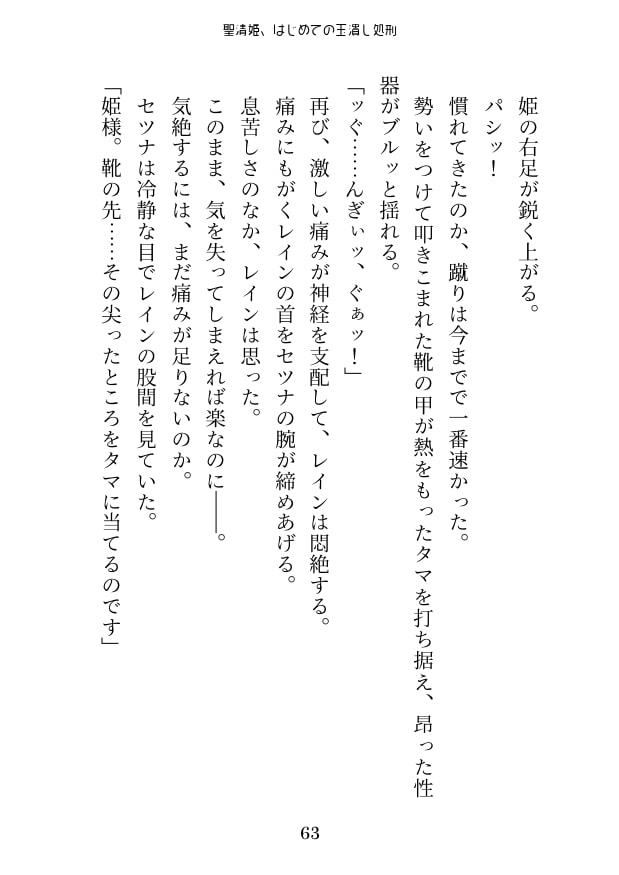 聖清姫、はじめての玉潰し処刑
姫の右足が鋭く上がる。
パシッ！
慣れてきたのか、蹴りは今までで一番速かった。
勢いをつけて叩きこまれた靴の甲が熱をもったタマを打ち据え、昂った性
器がブルッと揺れる。
「ッぐ……んぎぃッ、ぐぁッ！」
再び、激しい痛みが神経を支配して、レインは悶絶する。
痛みにもがくレインの首をセツナの腕が締めあげる。
息苦しさのなか、レインは思った。
このまま、気を失ってしまえれば楽なのに――。
気絶するには、まだ痛みが足りないのか。
セツナは冷静な目でレインの股間を見ていた。
「姫様。靴の先……その尖ったところをタマに当てるのです」
63